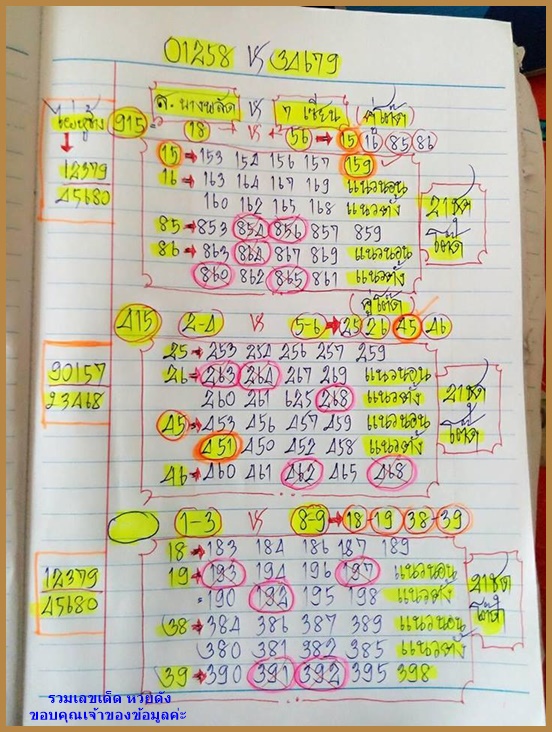 01258 VS 34679
ส. บางพลัด VS ๆ เซียน คู่โต๊ด
ไข่หูช้าง 915 = 18 → VS + 56 → 15 16 85 86
12379
45680
15 → 153 154 156 157 159
16 → 163 164 167 169 แนวนอน
160 162 165 168 แนวตั้ง
85 → 853 854 856 857 859
86 → 863 864 867 869 แนวนอน
860 862 865 861 แนวตั้ง
21 ชุด
โต๊ด
คู่โต๊ด
415 2-4 VS 5-6 → 25 26 45 46
90157
23468
25 → 253 254 256 257 259
26 → 263 264 267 269 แนวนอน
260 261 625 268 แนวตั้ง
45 → 453 456 457 459 แนวนอน
451 450 452 458 แนวตั้ง
46 → 460 461 462 465 468
21 ชุด
โต๊ด
1-3 VS 8-9 → 18 19 38 39
12379
45680
18 → 183 184 186 187 189
19 → 193 194 196 197 แนวนอน
190 192 195 198 แนวตั้ง
38 → 384 386 387 389 แนวนอน
380 381 382 385 แนวตั้ง
39 → 390 391 392 395 398
21 ชุด
โต๊ด
รวมเลขเด็ด หวยดัง
ขอบคุณเจ้าของข้อมูลค่ะ